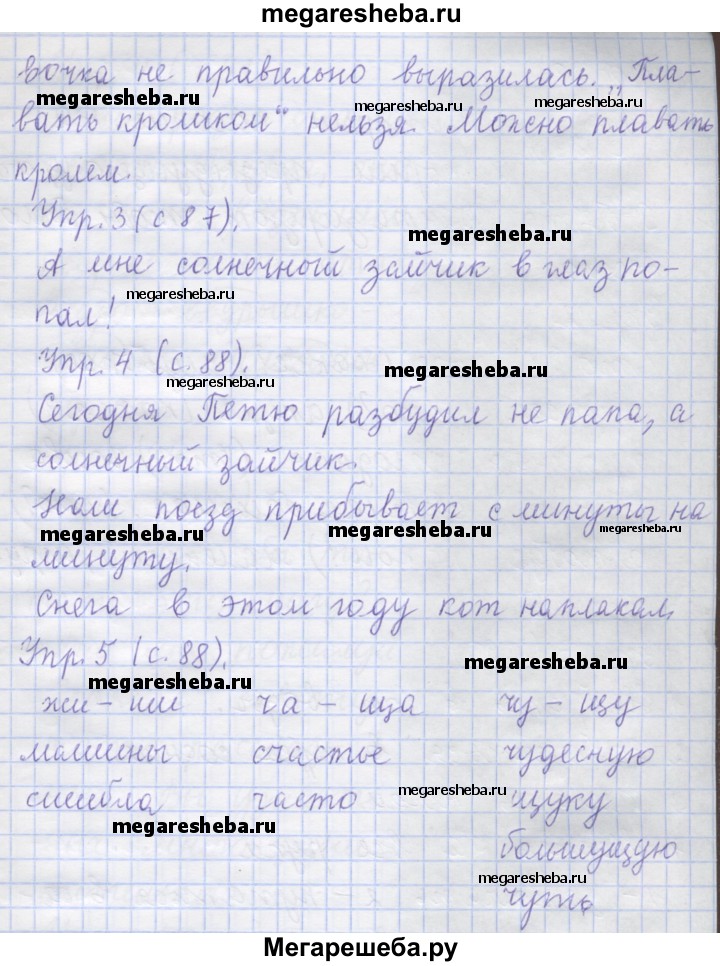 megaresheba.ru
вочка не правильно выразилась. „Пла-
megaresheba.ru megaresheba.ru megaresheba.ru
вать кроликом“ нельзя. Можно плавать
кролем.
Упр. 3 (с 87).
megaresheba.ru
А мне солнечный зайчик в глаз по-
megaresheba.ru
пал!
Упр. 4 (с. 88).
megaresheba.ru megaresheba.ru
Сегодня Петю разбудил не папа, а
солнечный зайчик.
Наш поезд прибывает с минуты на
megaresheba.ru megaresheba.ru megaresheba.ru
минуту.
Снега в этом году кот наплакал.
Упр. 5 (с. 88).
megaresheba.ru megaresheba.ru
жи - ши ча - ща чу - щу
машины счастье чудесную
megaresheba.ru
сшибла часто щуку
megaresheba.ru
большущую
megaresheba.ru
чуть
Мегарешеба.ру